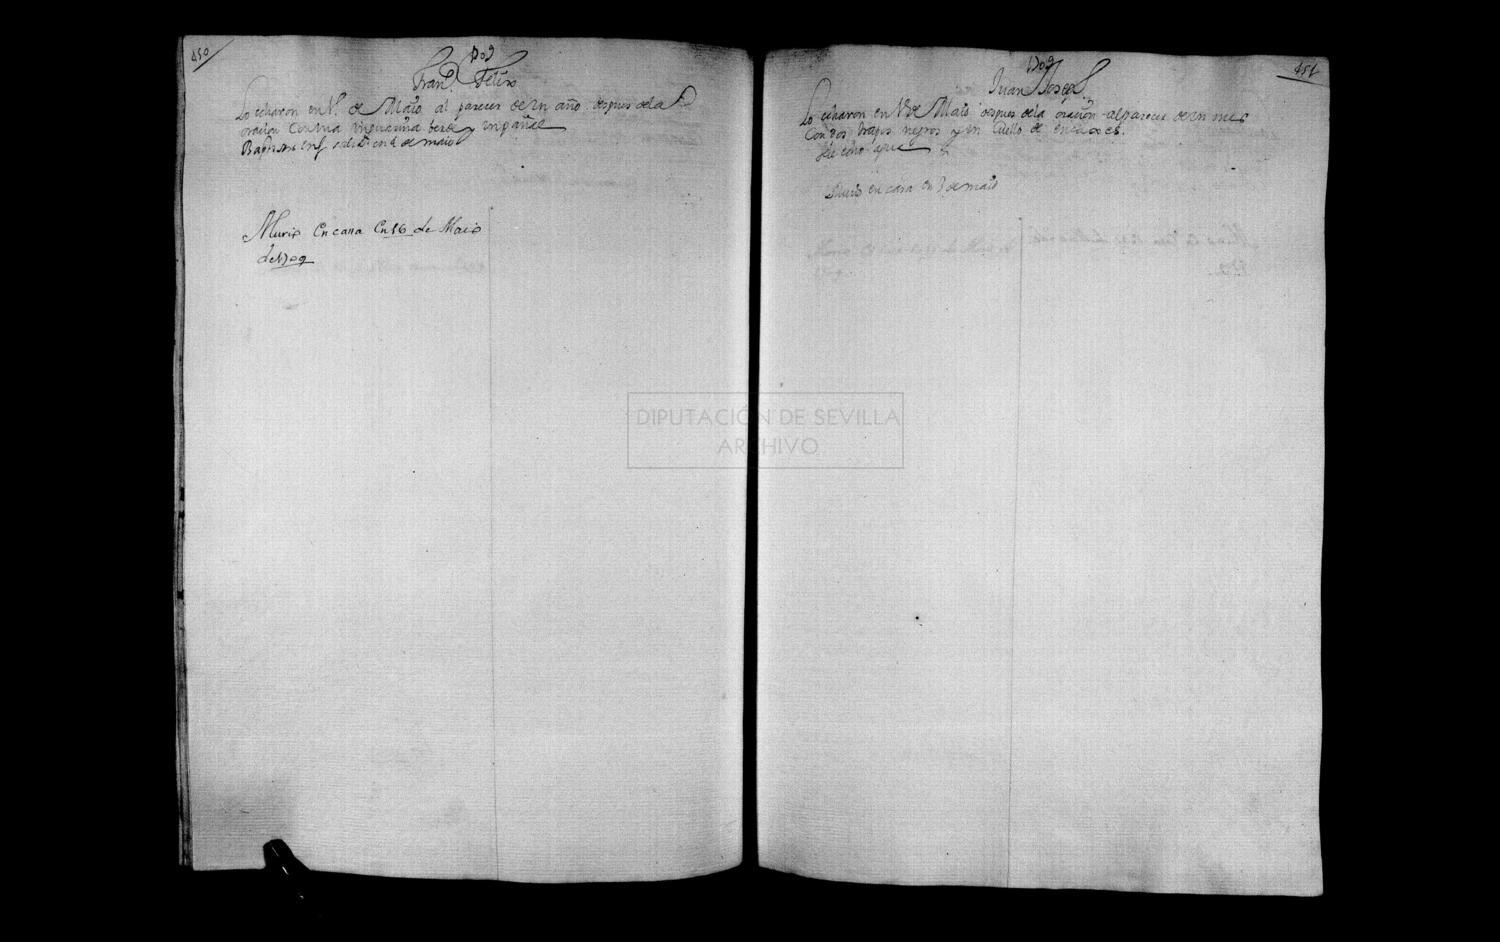 450
1709
Fran.co Felix
Lo echaron en 1.º de Maio al parecer de un año despues de la
oracion con una mantilla berde y un pañal
Baptisose en de maio
Murio en cassa en 16 de Maio
de 1709
1709
451
Juan Joseph
Lo echaron en 1.º de Maio despues de la oracion al parecer de un mes
con dos trapos negros y un Cuello de encaxes.
se le echo agua
Murio en casa en 3 de maio
DIPUTACIÓN DE SEVILLA
ARCHIVO